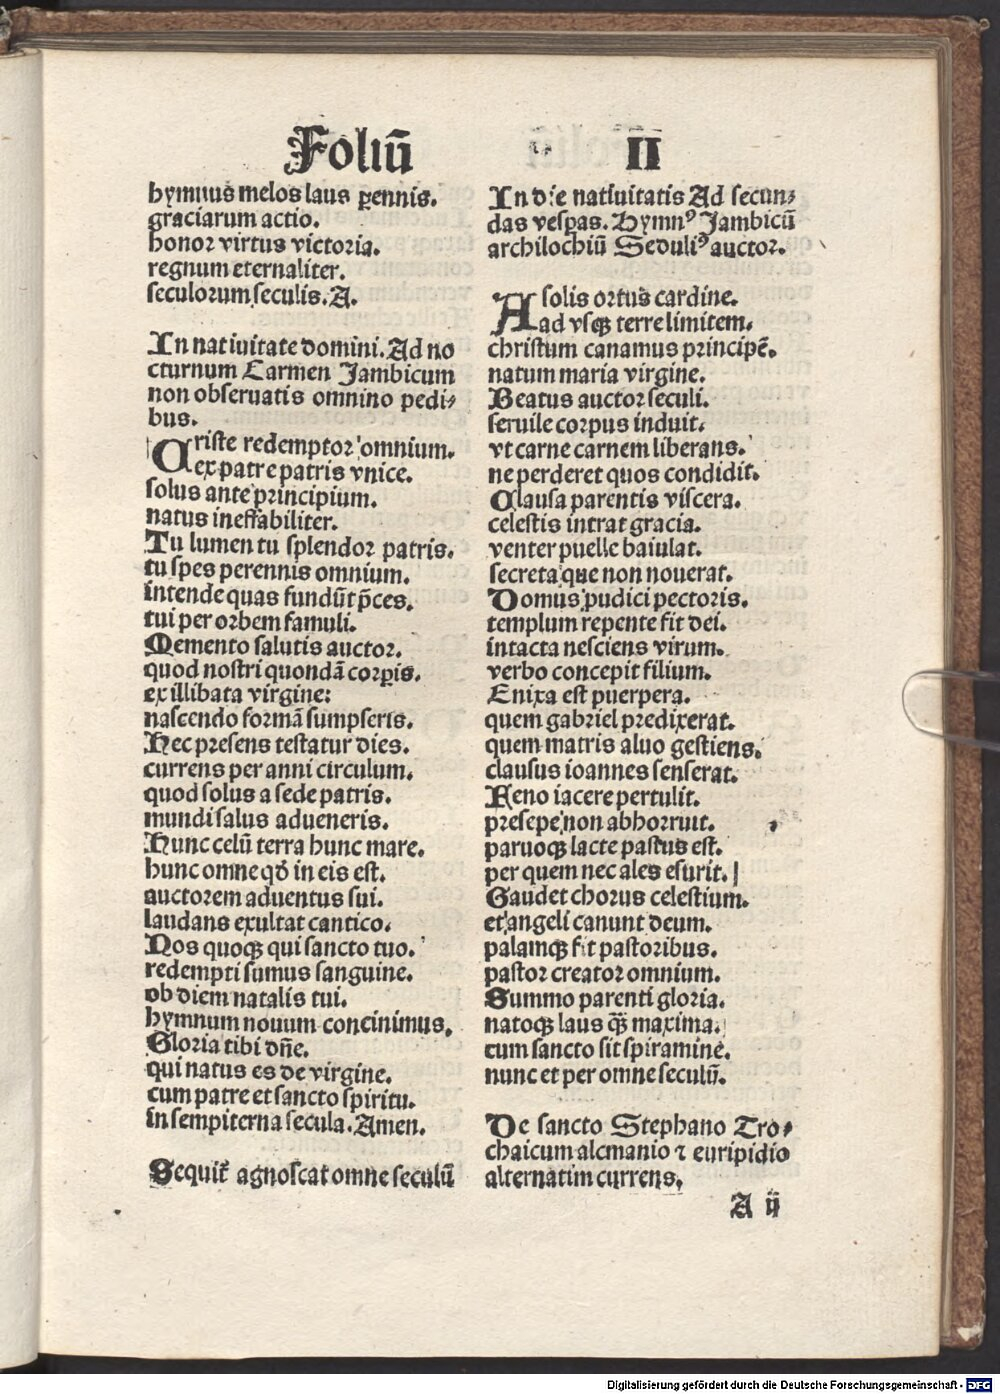 Foliū II
hymnus melos laus ꝑennis.
graciarum actio.
honor virtus victoria.
regnum eternaliter.
seculorum seculis. A.
In natiuitate domini. Ad no
cturnum Carmen Jambicum
non obseruatis omnino pedi⸗
bus.
Criste redemptor omnium.
ex patre patris vnice.
solus ante principium.
natus ineffabiliter.
Tu lumen tu splendor patris.
tu spes perennis omnium.
intende quas fundūt p̄ces.
tui per orbem famuli.
Memento salutis auctor.
quod nostri quondā corꝑis.
ex illibata virgine:
nascendo formā sumpseris.
Hec presens testatur dies.
currens per anni circulum.
quod solus a sede patris.
mundi salus adueneris.
Hunc celū terra hunc mare.
hunc omne qđ in eis est.
auctorem aduentus sui.
laudans exultat cantico.
Nos quoqꝫ qui sancto tuo.
redempti sumus sanguine.
ob diem natalis tui.
hymnum nouum concinimus.
Gloria tibi dn̄e.
qui natus es de virgine.
cum patre et sancto spiritu.
in sempiterna secula. Amen.
Sequit̄ agnoscat omne seculū
In die natiuitatis Ad secun⸗
das vesꝑas. Hymnꝰ Jambicū
archilochiū Seduliꝰ auctor.
A solis ortus cardine.
ad vsqꝫ terre limitem.
christum canamus principē.
natum maria virgine.
Beatus auctor seculi.
seruile corpus induit.
vt carne carnem liberans.
ne perderet quos condidit.
Clausa parentis viscera.
celestis intrat gracia.
venter puelle baiulat.
secreta que non nouerat.
Domus pudici pectoris.
templum repente fit dei.
intacta nesciens virum.
verbo concepit filium.
Enixa est puerpera.
quem gabriel predixerat.
quem matris aluo gestiens.
clausus ioannes senserat.
Feno iacere pertulit.
presepe non abhorruit.
paruoqꝫ lacte pastus est.
per quem nec ales esurit.
Gaudet chorus celestium.
et angeli canunt deum.
palamqꝫ fit pastoribus.
pastor creator omnium.
Summo parenti gloria.
natoqꝫ laus qꝫ̄ maxima.
cum sancto sit spiramine.
nunc et per omne seculū.
De sancto Stephano Tro⸗
chaicum alcmanio ⁊ euripidio
alternatim currens.
A ij
Digitalisierung gefördert durch die Deutsche Forschungsgemeinschaft - DFG